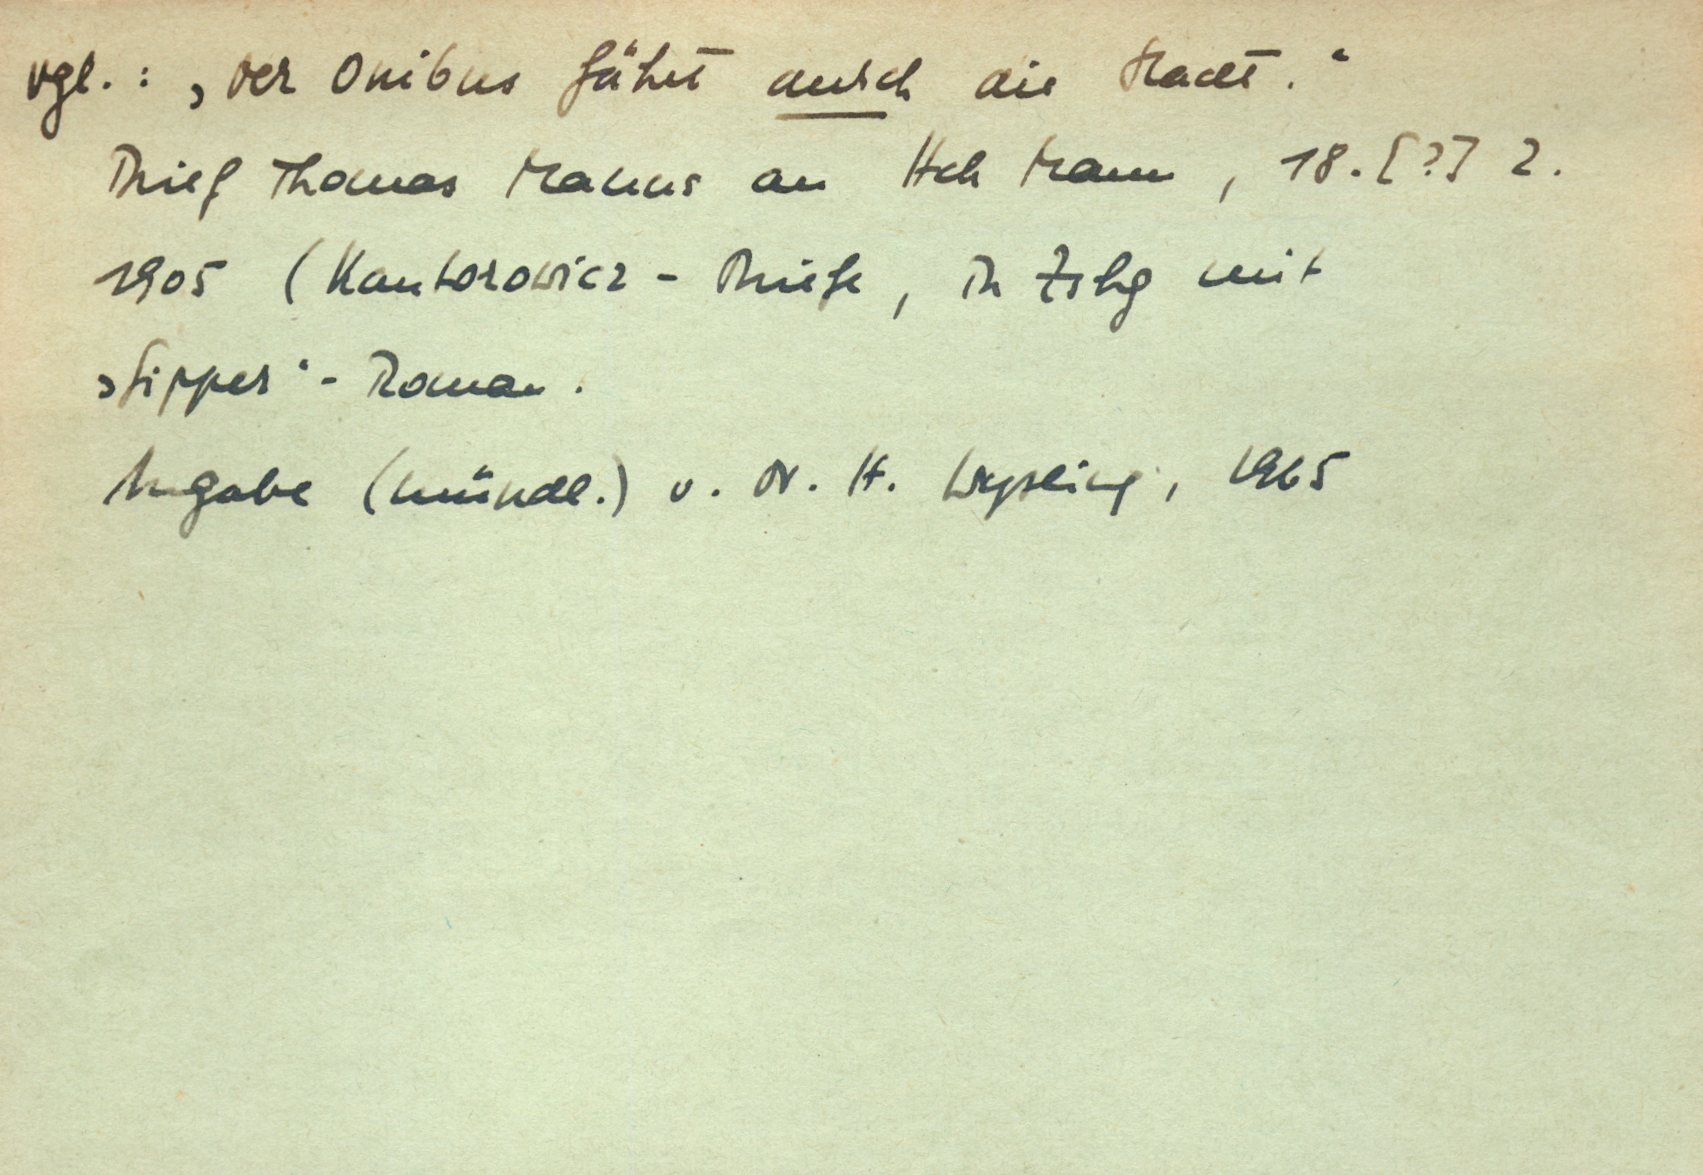 vgl.: „Der Onibus fährt durch die Stadt."
Brief Thomas Manns an Hch Mann, 18.[?] 2.
1905 (Kantorowicz-Briefe, in Zshg mit
„Sipper"-Roman.
Angabe (mündl.) v. Dr. H. Wysling, 1965